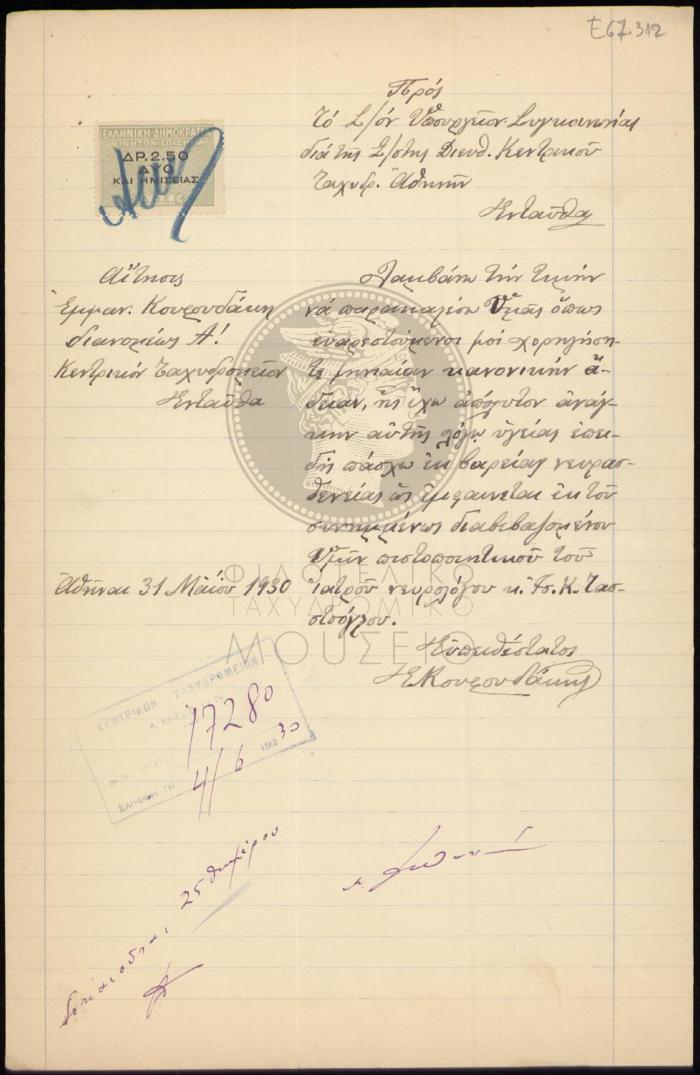 Ε67.312
Πρός
τό Σ/όν Ὑπουργεῖον Συγκοινωνίας
διά τῆς Σ/στης Διευθ. Κεντρικοῦ
Ταχυδρ. Ἀθηνῶν
Ἐνταῦθα
ΕΛΛΗΝΙΚΗ·ΔΗΜΟΚΡΑΤΙΑ
ΚΙΝΗΤΟΝ·ΕΠΙΣΗΜΑ
ΔΡ.2.50
ΔΥΟ
ΚΑΙ ΗΜΙΣΕΙΑΣ
Αἴτησις
Ἐμμαν. Κουρουδάκη
διανομέως Α!
Κεντρικόν Ταχυδρομεῖον
Ἐνταῦθα
Λαμβάνω τήν τιμήν
νά παρακαλέσω Ὑμᾶς ὅπως
εὐαρεστούμενοι μοί χορηγήση-
τε μηνιαίαν κανονικήν ἄ-
δειαν, ἧς ἔχω ἀπόλυτον ἀνάγ-
κην αὐτῆς λόγῳ ὑγείας ἐπει-
δή πάσχω ἐκ βαρείας νευρασ-
θενείας ὡς ἐμφαίνεται ἐκ τοῦ
συνημμένως διαβιβαζομένου
Ὑμῖν πιστοποιητικοῦ τοῦ
Ἰατροῦ νευρολόγου κ. Ἰσ. Κ. Τασ-
σόγλου.
Ἀθῆναι 31 Μαΐου 1930
Εὐπειθέστατος
Ἐ Κουρουδάκης
ΦΙΛΟΤΕΛΙΚΟ
ΤΑΧΥΔΡΟΜΙΚΟ
ΜΟΥΣΕΙΟ
ΚΕΝΤΡΙΚΟΝ ΤΑΧΥΔΡΟΜΕΙΟΝ
17280
ΕΛΗΦΘΗ ΤΗ 4/6 192 30
25θημέρου